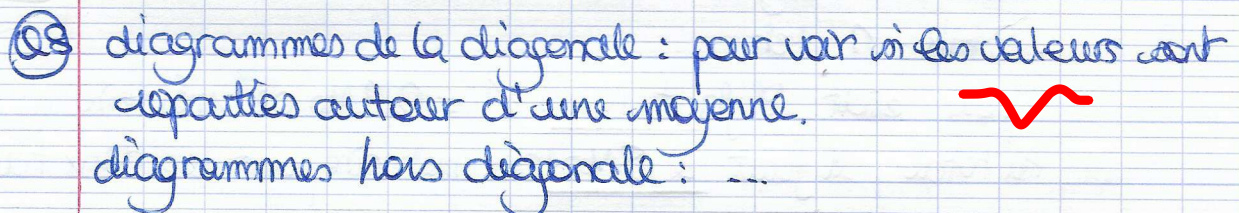 Q8 diagrammes de la diagonale : pour voir si les valeurs sont
reparties autour d'une moyenne.
diagrammes hors diagonale : ...